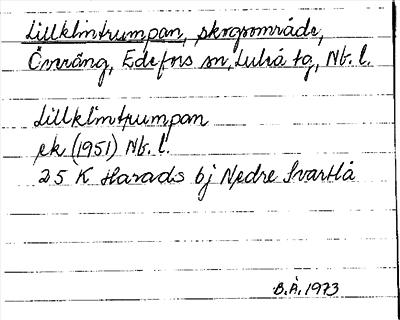 Lillklintrumpan, skogsområde,
Överäng, Edefors sn, Luleå tg, Nb. l.
Lillklintrumpan
ek (1951) Nb. l.
25 K Harads 6j Nedre Svartlå
B.Å. 1973